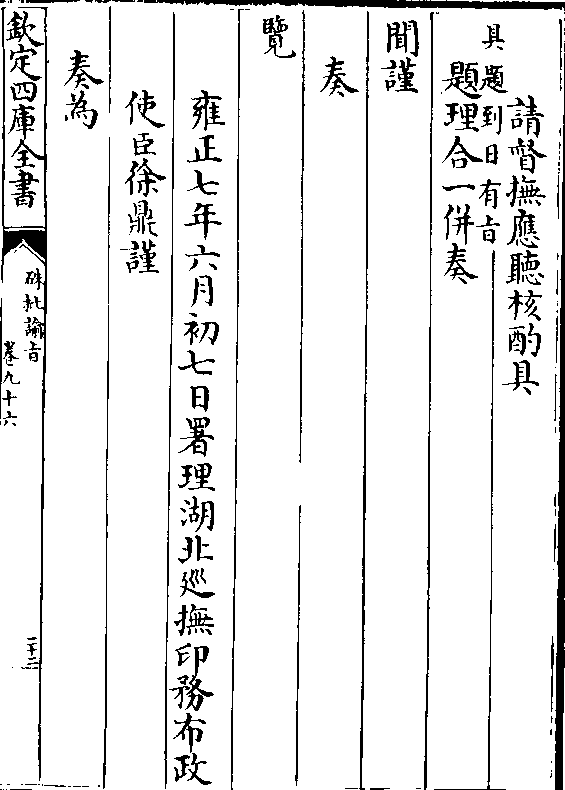 請督撫應聽核酌具
題理合一併奏
具題到日有旨
聞謹
奏
覽
雍正七年六月初七日署理湖北巡撫印務布政
使臣徐鼎謹
奏為
欽定四庫全書
硃批諭旨
卷九十六
二十二